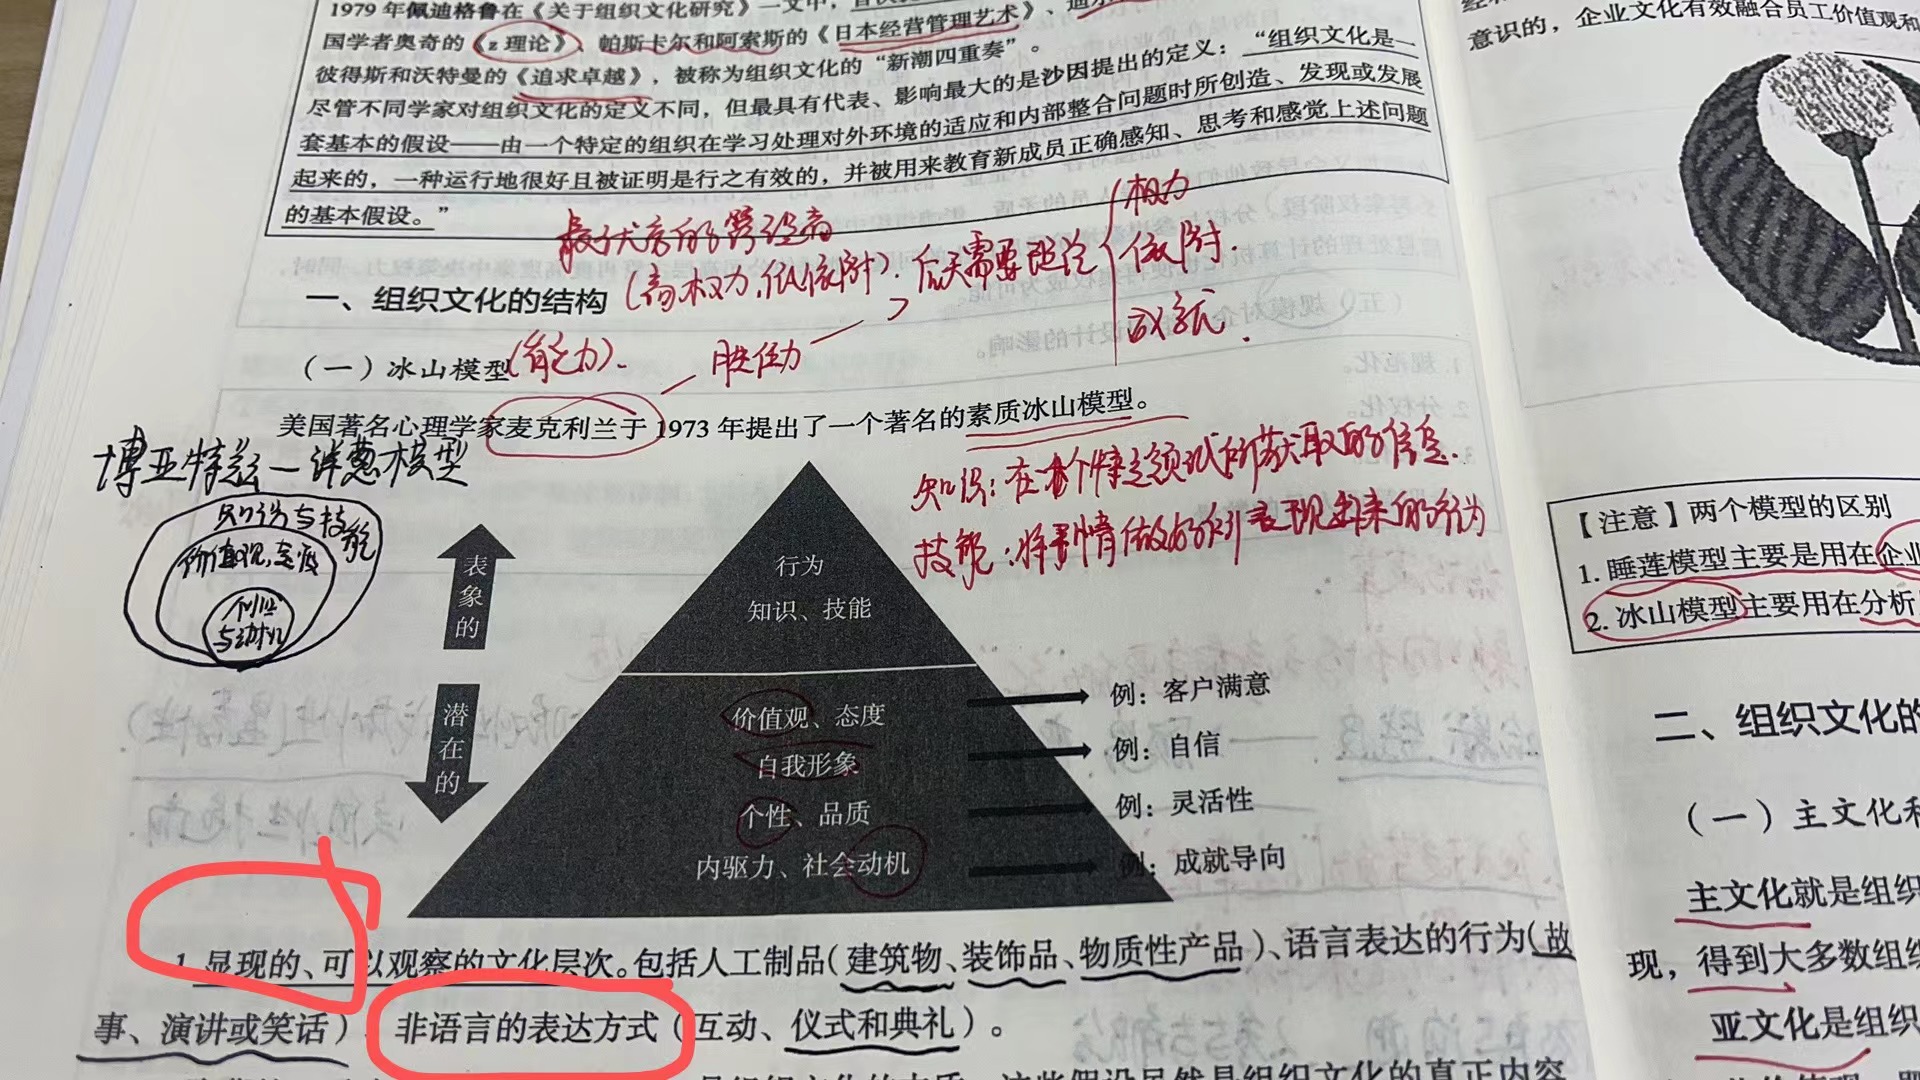 1979年佩迪格鲁在《关于组织文化研究》一文中，
国学者奥奇的《z理论》、帕斯卡尔和阿索斯的《日本经营管理艺术》、
彼得斯和沃特曼的《追求卓越》，被称为组织文化的“新潮四重奏”。
尽管不同学家对组织文化的定义不同，但最具有代表、影响最大的是沙因提出的定义：“组织文化是一
套基本的假设——由一个特定的组织在学习处理对外环境的适应和内部整合问题时所创造、发现或发展
起来的，一种运行地很好且被证明是行之有效的，并被用来教育新成员正确感知、思考和感觉上述问题
的基本假设。”
最优秀的管理者
(高权力,低依附).后天需要理论
权力
依附.
成就.
一、组织文化的结构
（一）冰山模型
(能力).
胜任力
美国著名心理学家麦克利兰于1973年提出了一个著名的素质冰山模型。
博亚特兹—洋葱模型
知识与技能
价值观,态度
个性
与动机
知识：在某个特定领域所获取的信息.
技能：将事情做好所表现出来的行为
表象的
潜在的
行为
知识、技能
价值观、态度
自我形象
个性、品质
内驱力、社会动机
例：客户满意
例：自信
例：灵活性
例：成就导向
1.显现的、可以观察的文化层次。包括人工制品(建筑物、装饰品、物质性产品)、语言表达的行为(故
事、演讲或笑话)、非语言的表达方式(互动、仪式和典礼)。
是组织文化的本质，这些假设虽然是组织文化的真正内容
意识的，企业文化有效融合员工价值观和
【注意】两个模型的区别
1.睡莲模型主要是用在企业
2.冰山模型主要用在分析
二、组织文化的
（一）主文化和
主文化就是组织
现，得到大多数组织
亚文化是组织